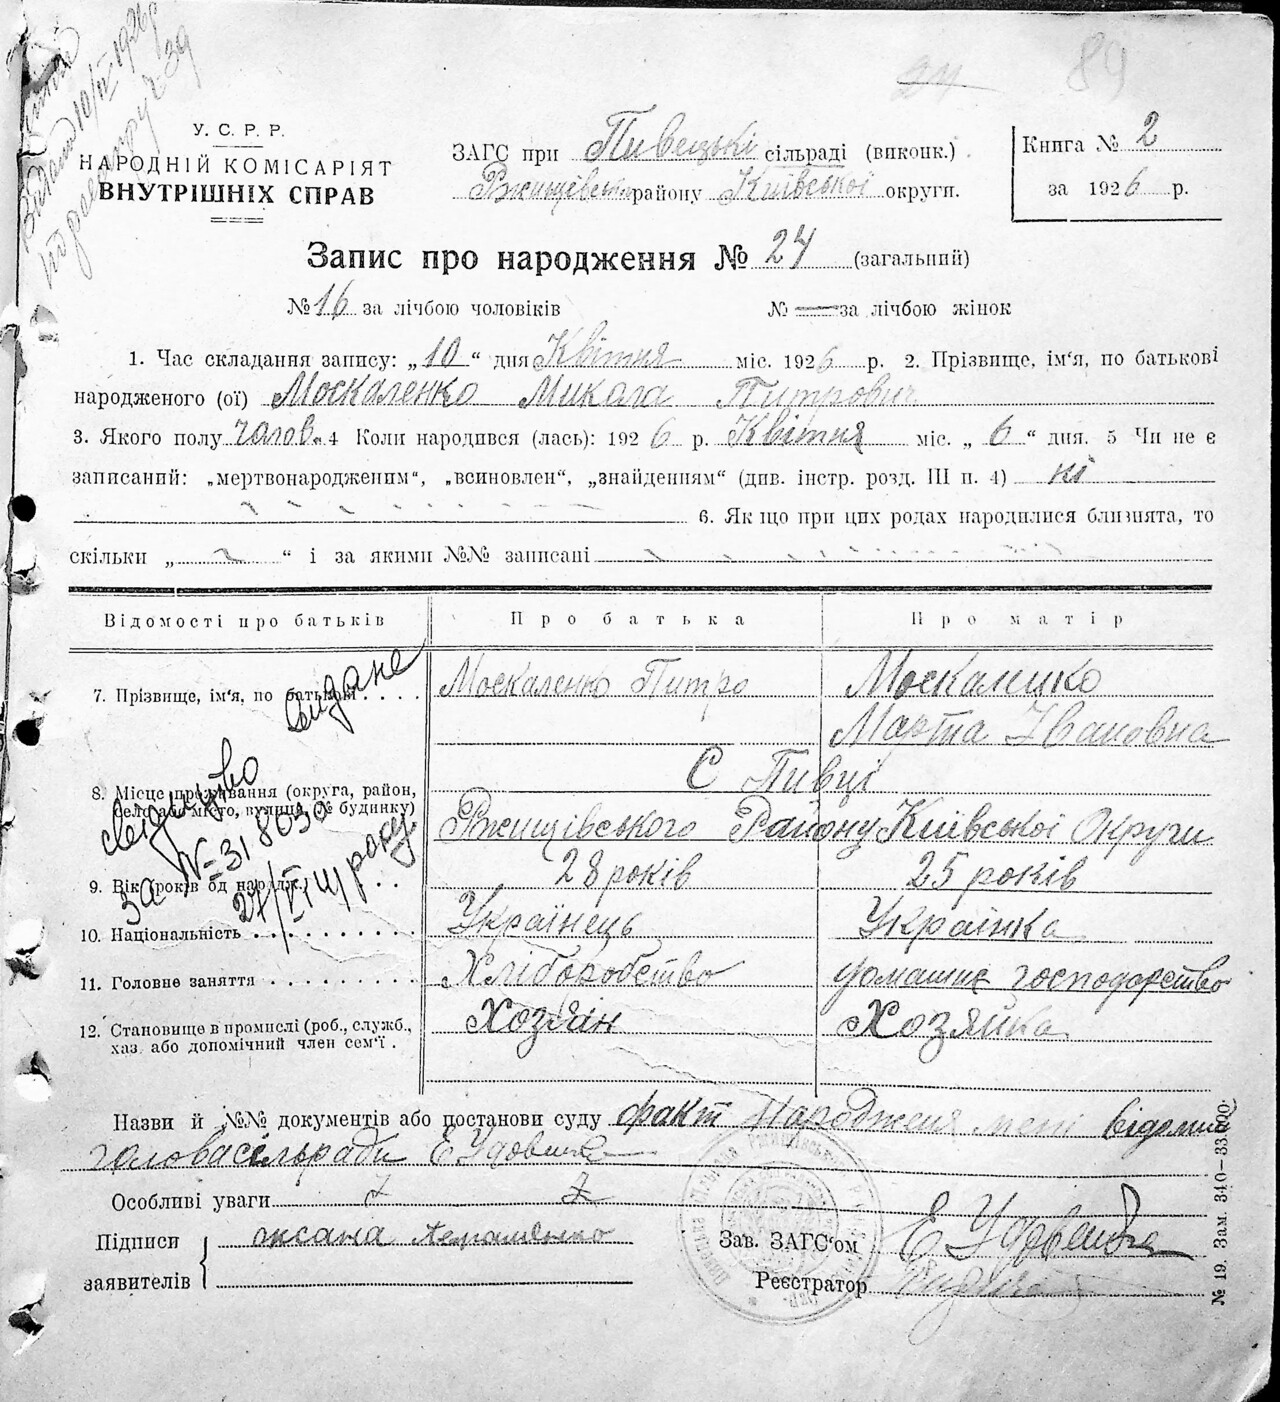 89
У. С. Р. Р.
НАРОДНІЙ КОМІСАРІЯТ
ВНУТРІШНІХ СПРАВ
ЗАГС при Пивецькі сільраді (виконк.)
Ржищівськ району Київської округи.
Книга № 2
за 1926 р.
Запис про народження № 24 (загальний)
№ 16 за лічбою чоловіків № — за лічбою жінок
1. Час складання запису: „10“ дня Квітня міс. 1926 р. 2. Прізвище, ім'я, по батькові
народженого (ої) Москаленко Микола Питрович
3. Якого полу чолов. 4 Коли народився (лась): 1926 р. Квітня міс. „6“ дня. 5 Чи не є
записаний: „мертвонародженим“, „всиновлен“, „знайденням“ (див. інстр. розд. III п. 4) ні
6. Якщо при цих родах народилися близнята, то
скільки „ “ і за якими №№ записані
Відомості про батьків Про батька Про матір
7. Прізвище, ім'я, по батькові Москаленко Питро Москаленко
Марта Івановна
С Пивці
8. Місце проживання (округа, район,
село або місто, вулиця, № будинку)
Ржищівського Району Київської Округи
9. Вік (років од народж.) 28 років 25 років
10. Національність Українець Українка
11. Головне заняття Хліборобство домашнє господарство
12. Становище в промислі (роб., служб.,
хаз. або допомічний член сем'ї. Хозяін Хозяйка
свидоцтво видане
за № 318030
27/VI роцу
Назви й №№ документів або постанови суду факт народженя мені відомий
головасільради Е Удовика
Особливі уваги
Підписи
заявителів
Зав. ЗАГС'ом
Реєстратор
№ 19. Зам. 340—33.000.